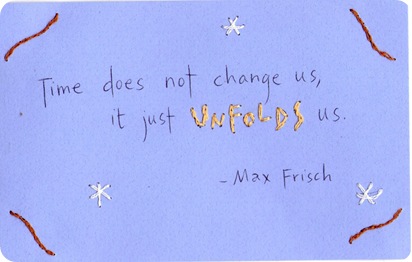 Time does not change us,
it just UNFOLDS us.
-Max Frisch